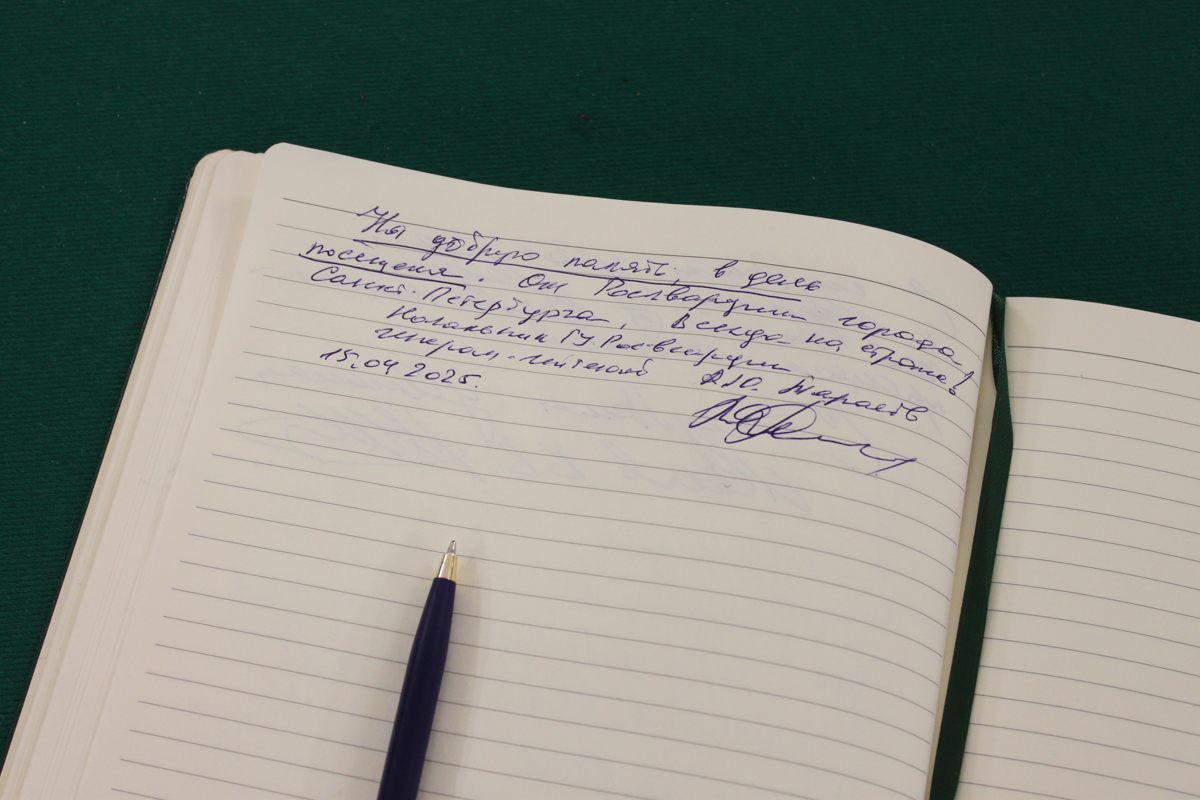 На добрую память, в день
посещения. От Росгвардии города
Санкт-Петербурга, Всегда на страже!
Начальник ГУ Росгвардии
генерал-лейтенант А.Ю. Тараств
15.04 2025.